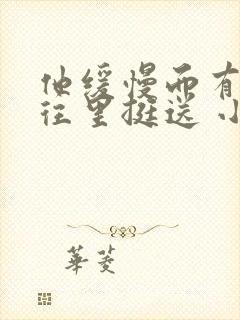 他缓慢而有
往里挺送 小
華菱